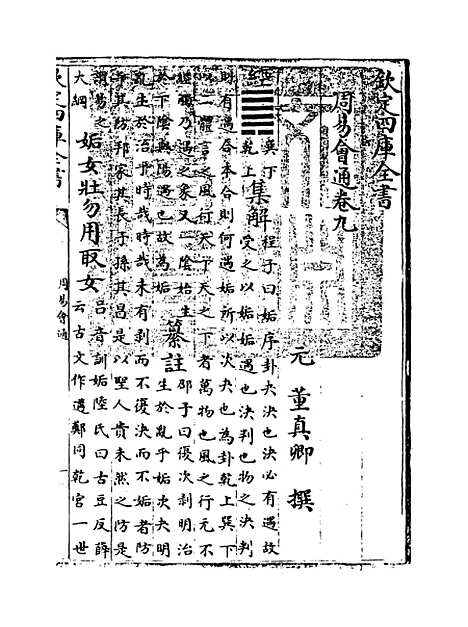 欽定四庫全書
周易會通卷九
元 董真卿 撰
經
䷫
巽下
乾上
集解
程子曰姤序卦夬決也決必有遇故
受之以姤姤遇也決判也物之決判
則有遇合本合則何遇姤所以次夬也為卦乾上巽下
以一體言之風行天下天之下者萬物也風之行元不
經觸乃遇之象又一陰始生
於下陰與陽遇也故為姤
纂註
邵子曰復次剥明治
生於亂乎姤次夬明
亂生於治乎時哉時哉未有剥而不復決而不姤者防
乎其防邦家其長子孫其昌是以聖人貴未然之防是
謂易之
大綱
姤女壯勿用取女
呂音訓姤陸氏曰古豆反薛
云古文作遘鄭同乾宫一世
欽定四庫全書
周易會通
一